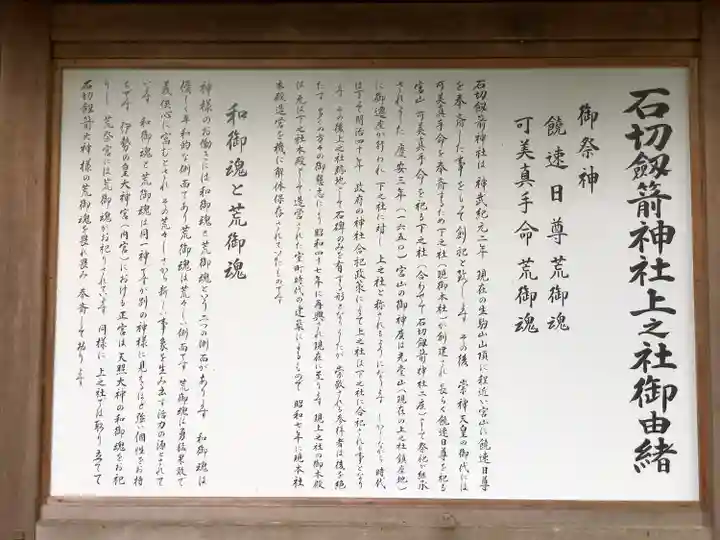 石切劔箭神社上之社御由緒
御祭神
饒速日尊荒御魂
可美真手命荒御魂
石切劔箭神社は神武紀元二年 現在の生駒山山頂に程近い宮山に饒速日尊
を奉斎した事をもって創祀と致します その後 崇神天皇の御代には
可美真手命を奉斎するため下之社（現御本社）が創建され 長らく饒速日尊を祀る
宮山 可美真手命を祀る下之社（合わせて石切劔箭神社二座）として祭祀が継承
されました 慶安三年（一六五〇）宮山の御神座は元堂山（現在の上之社鎮座地）
に御遷座が行われ 下之社に対し 上之社と称されるようになります しかしながら時代
は下って明治四十年 政府の神社合祀政策によって上之社は下之社に合祀される事となり
ます その後上之社跡地として石碑のみを有する形となりましたが 崇敬される参拝者は後を絶
たず 多くの方々の御懇志により 昭和四十七年に再興され現在に至ります 現上之社の御本殿
は元は下之社本殿として造営された室町時代の建築によるもので 昭和七年に現本社
本殿造営を機に解体保存されていたものです
和御魂と荒御魂
神様のお働きには和御魂と荒御魂という二つの側面があります 和御魂は
優しく平和的な側面であり 荒御魂は荒々しい側面です 荒御魂は勇猛果敢で
義侠心に富むとされ その荒々しさから新しい事象を生み出す活力の源とされて
います 和御魂と荒御魂は同一神ですが別の神様に見えるほど強い個性をお持
ちです 伊勢の皇大神宮（内宮）における正宮は天照大神の和御魂をお祀
りし 荒祭宮には荒御魂がお祀りされています 同様に 上之社では取り立てて
石切劔箭大神様の荒御魂を畏れ畏み 奉斎しております